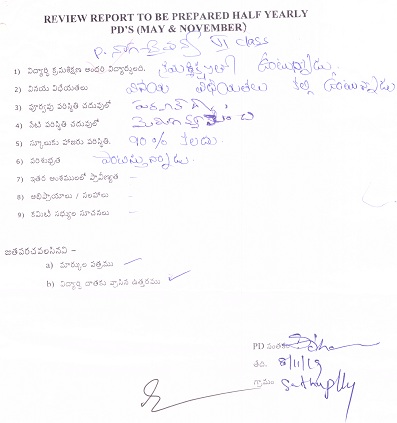 REVIEW REPORT TO BE PREPARED HALF YEARLY
PD'S (MAY & NOVEMBER)
P. VI class
1) విద్యార్థి క్రమశిక్షణ అందరి విద్యార్థులది. క్రమశిక్షణతో ఉంటున్నాడు.
2) వినయ విధేయతలు వినయ విధేయతలు కల్గి ఉంటున్నాడు
3) పూర్వపు పరిస్థితి చదువులో
4) నేటి పరిస్థితి చదువులో
5) స్కూలుకు హాజరు పరిస్థితి. 90% కలదు.
6) పరిశుభ్రత
7) ఇతర అంశములలో ప్రావీణ్యత –
8) అభిప్రాయాలు / సలహాలు –
9) కమిటీ సభ్యుల సూచనలు –
జతపరచవలసినవి –
a) మార్కుల పత్రము ✓
b) విద్యార్థి దాతకు వ్రాసిన ఉత్తరము ✓
PD సంతకం
తేది. 8/11/19
గ్రామం Sathuplly